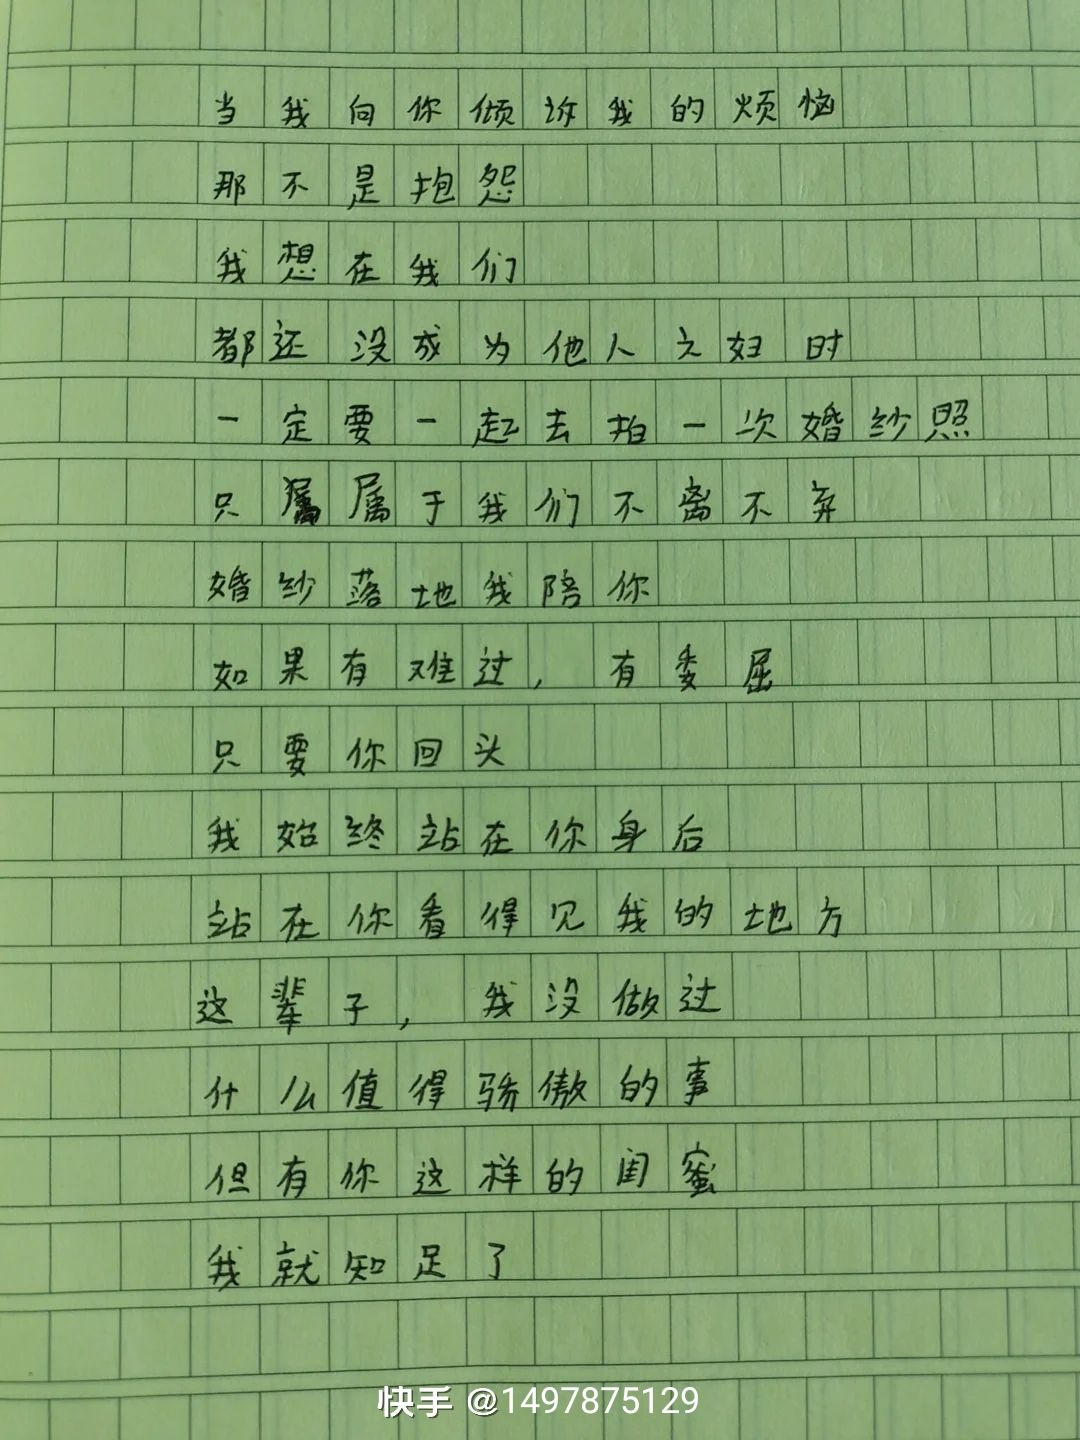 当我向你倾诉我的烦恼
那不是抱怨
我想在我们
都还没成为他人之妇时
一定要一起去拍一次婚纱照
只属于我们不离不弃
婚纱落地我陪你
如果有难过，有委屈
只要你回头
我始终站在你身后
站在你看得见我的地方
这辈子，我没做过
什么值得骄傲的事
但有你这样的闺蜜
我就知足了
快手 @1497875129